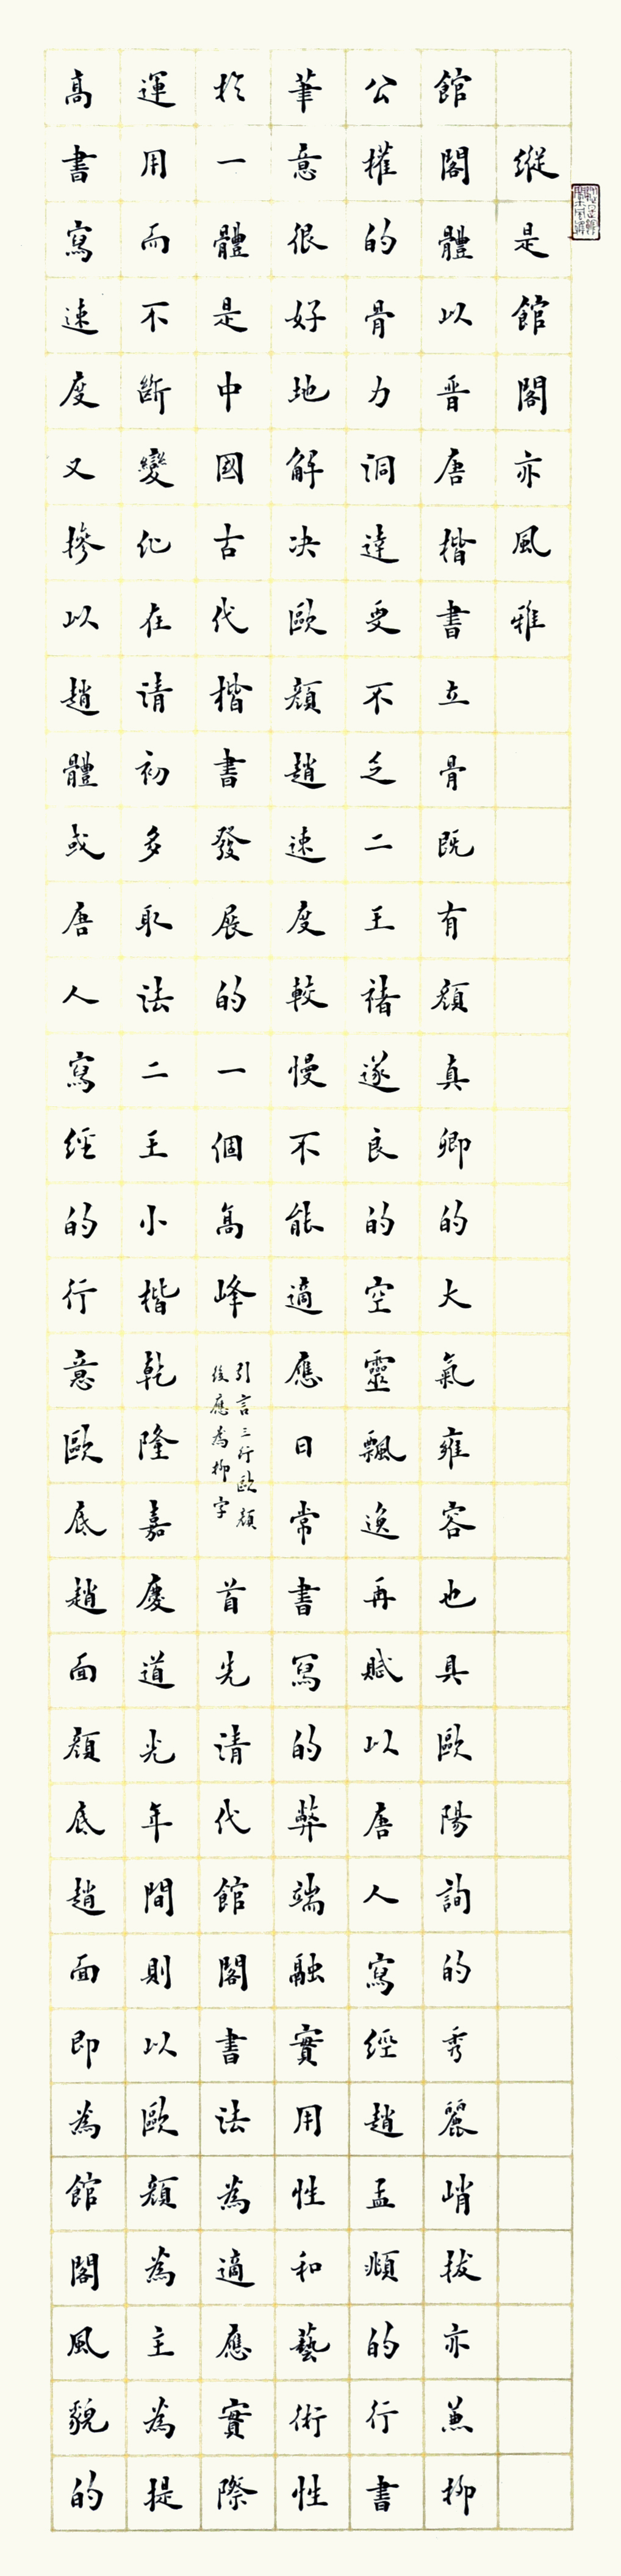 縱是館閣亦風雅
館閣體以晋唐楷書立骨既有顏真卿的大氣雍容也具歐陽詢的秀麗峭拔亦兼柳
公權的骨力洞達更不乏二王褚遂良的空靈飄逸再賦以唐人寫經趙孟頫的行書
筆意很好地解决歐顏趙速度較慢不能適應日常書寫的弊端融實用性和藝術性
於一體是中國古代楷書發展的一個高峰
引言三行歐顏
後應為柳字
首先请代館閣書法為適應實際
運用而不斷變化在请初多取法二王小楷乾隆嘉慶道光年間則以歐顏為主為提
高書寫速度又摻以趙體或唐人寫經的行意歐底趙面顏底趙面即為館閣風貌的